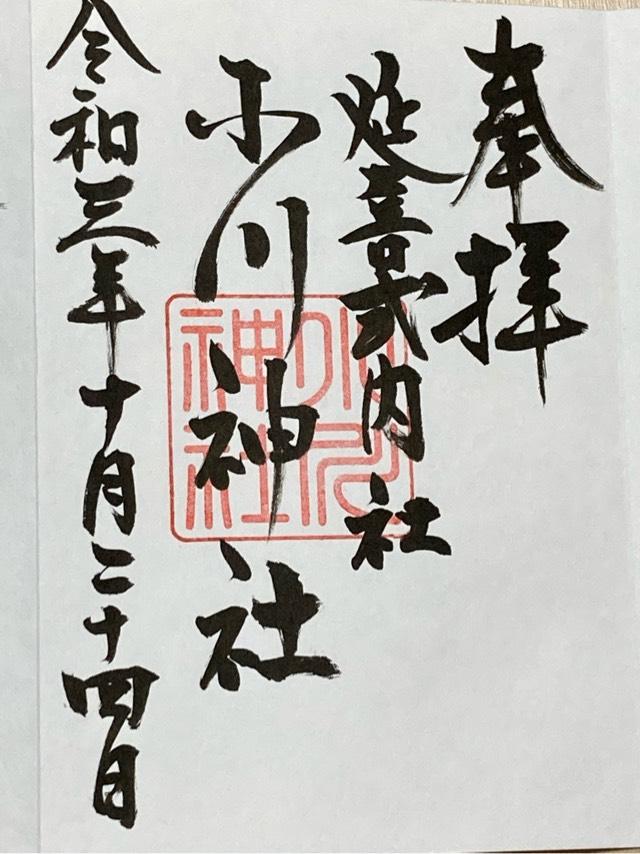 奉拝
延喜式内社
小川神社
令和三年十月二十四日